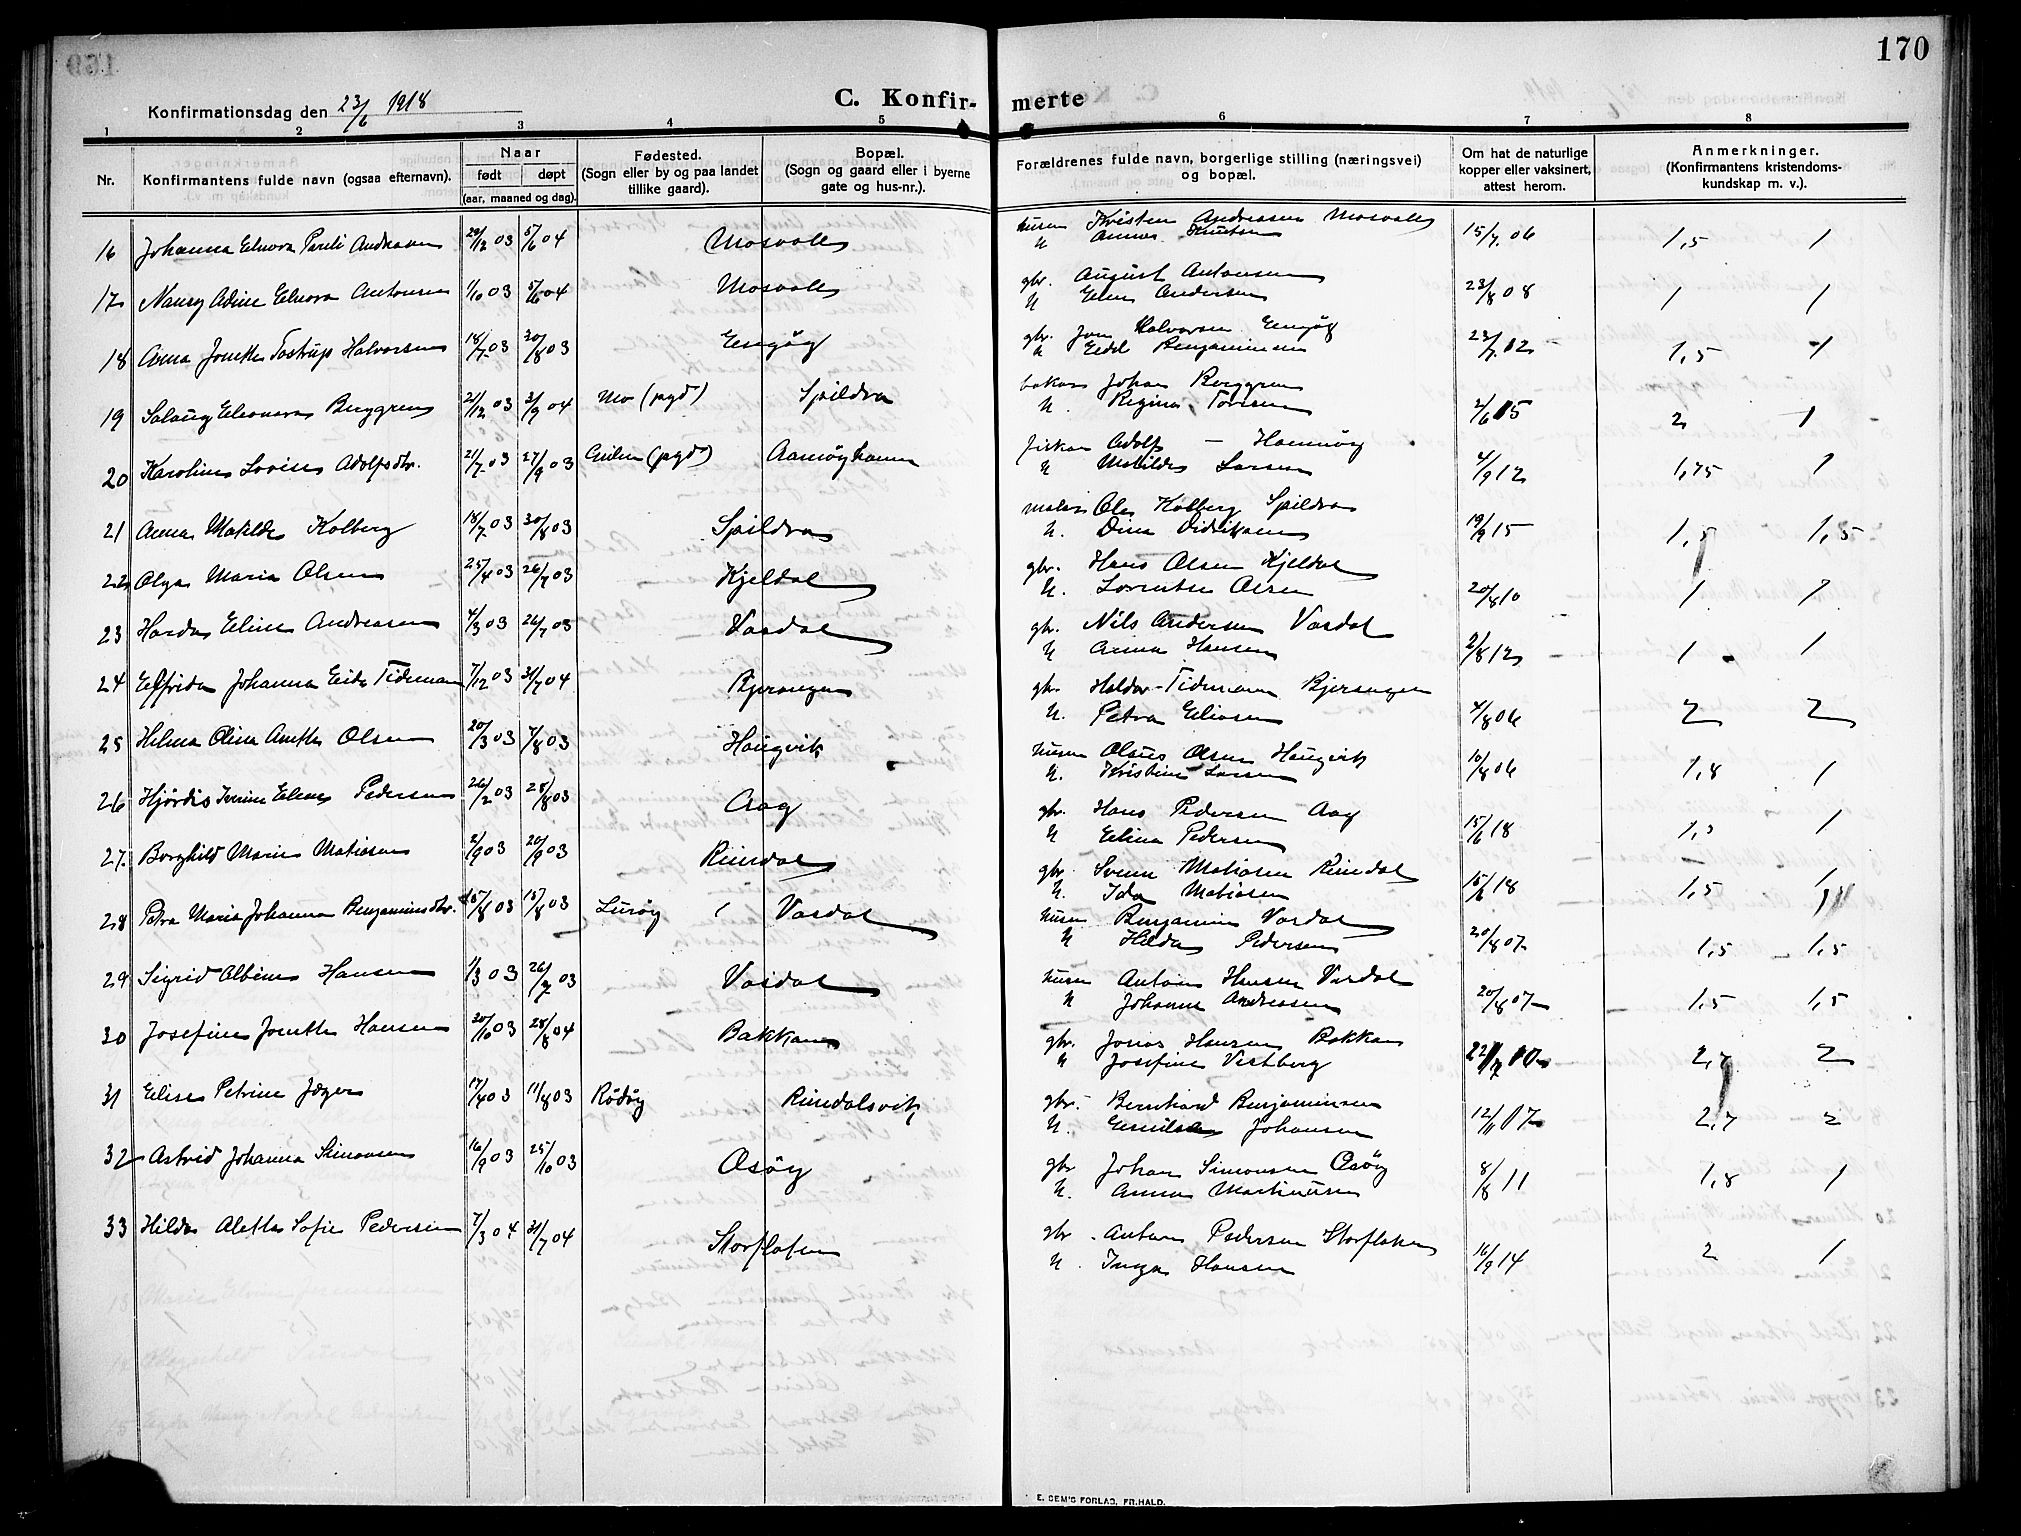 170
Konfirmationsdag den 23/6 1918
C. Konfir- merte
1 2 3 4 5 6 7 8
Nr. Konfirmantens fulde navn (ogsaa efternavn). Naar født døpt (aar, maaned og dag). Fødested. (Sogn eller by og paa landet tillike gaard). Bopæl. (Sogn og gaard eller i byerne gate og hus-nr.). Forældrenes fulde navn, borgerlige stilling (næringsvei) og bopæl. Om hat de naturlige kopper eller vaksinert, attest herom. Anmerkninger. (Konfirmantens kristendoms-kundskap m. v.).
16 Johanna Elnora Andreasen 29/12 03 5/6 04 Mosvold husm Kristen Andreasen Mosvold 15/7 06 1,5 1
h Anna Knutsen
17 Nancy Adine Elnora Antonsen 1/10 03 5/6 04 Mosvold gbr. August Antonsen 23/8 08 1 1
h Elen Andersen
18 Anna Jonette Tostrup Halvorsen 18/7 03 30/8 03 Engøy gbr. Halvorsen Engøy 1,5 1
h Benjaminsen
19 Solaug Eleonora Berggren 21/12 03 3/9 04 Mo (pgd) Spildra Johan Berggren 2/6 15 2 1
h. Regina
20 Karoline Lovise Adolfsdtr. 21/7 03 27/9 03 (pgd) Aamøyhamn fisker Adolf — 4/9 12 1,75 1
h Matilde Larsen
21 Anna Matilde Kolberg 18/7 03 30/8 03 Spildra maler Ole Kolberg Spildra 19/9 15 1,5 1,5
h. Dina Didriksen
22 Olga Maria Olsen 25/4 03 26/7 03 Kjeldal gbr. Hans Olsen Kjeldal 20/8 10 1 1
h. Lorentse Olsen
23 Harda Eline Andreasen 4/3 03 26/7 03 Vasdal gbr. Nils Andersen Vasdal 2/8 12 1 1
h Anna Hansen
24 Elfrida Johanna Tideman 7/12 03 31/7 04 Bjerangen gbr. Haldor Tidemann Bjerangen 4/8 06 2 2
h. Petra Eliasen
25 Helma Olina Anette Olsen 20/3 03 7/8 03 Haugvik husm Olaus Olsen Haugvik 10/8 06 1,8 1
h. Kristine Larsen
26 Hjørdis Elene Pedersen 26/2 03 25/8 03 Aag gbr. Hans Pedersen Aag 15/6 18 1,3 1
h Elina Pedersen
27. Borghild Marie Matiasen 2/9 03 20/9 03 Reindal gbr. Svenn Matiasen Reindal 15/6 18 1,5 1
h. Ida Matiasen
28 Petra Maria Johanna Benjaminsdtr. 15/8 03 Lurøy Vasdal husm Benjamin Vasdal 20/8 07 1,5 1,5
h Hilda Pedersen
29 Sigrid Albine Hansen 1/3 03 26/7 03 Vasdal husm Anton Hansen Vasdal 20/8 07 1,5 1,5
h Johanna Andreasen
30 Josefine Jonette Hansen 20/10 03 28/8 04 Bakkan gbr. Jonas Hansen Bakkan 2,7 2
h Josefine Vestberg
31 Elise Petrine Jæger 17/4 03 11/8 03 Rødøy Reindalsvik gbr. Bernhard Benjaminsen 12/11 07 2,7 2
h. Johansen
32 Astrid Johanna Simonsen 16/9 03 25/10 03 Esøy gbr Johan Simonsen Esøy 8/8 11 1,8 1
h. Anna Martinusen
33 Hilda Aletta Sofie Pedersen 7/3 04 31/7 04 Storflaten gbr. Anton Pedersen Storflaten 16/9 14 2 1
h. Inga Hansen
E. SEM'S FORLAG, FR.HALD.